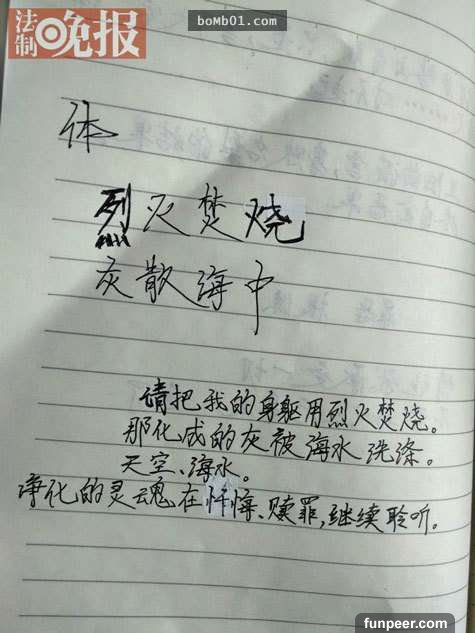 法制晚报
bomb01.com
体
烈火焚烧
灰散海中
请把我的身躯用烈火焚烧。
那化成的灰被海水洗涤。
天空、海水。
净化的灵魂在忏悔、赎罪,继续聆听。
funpeer.com